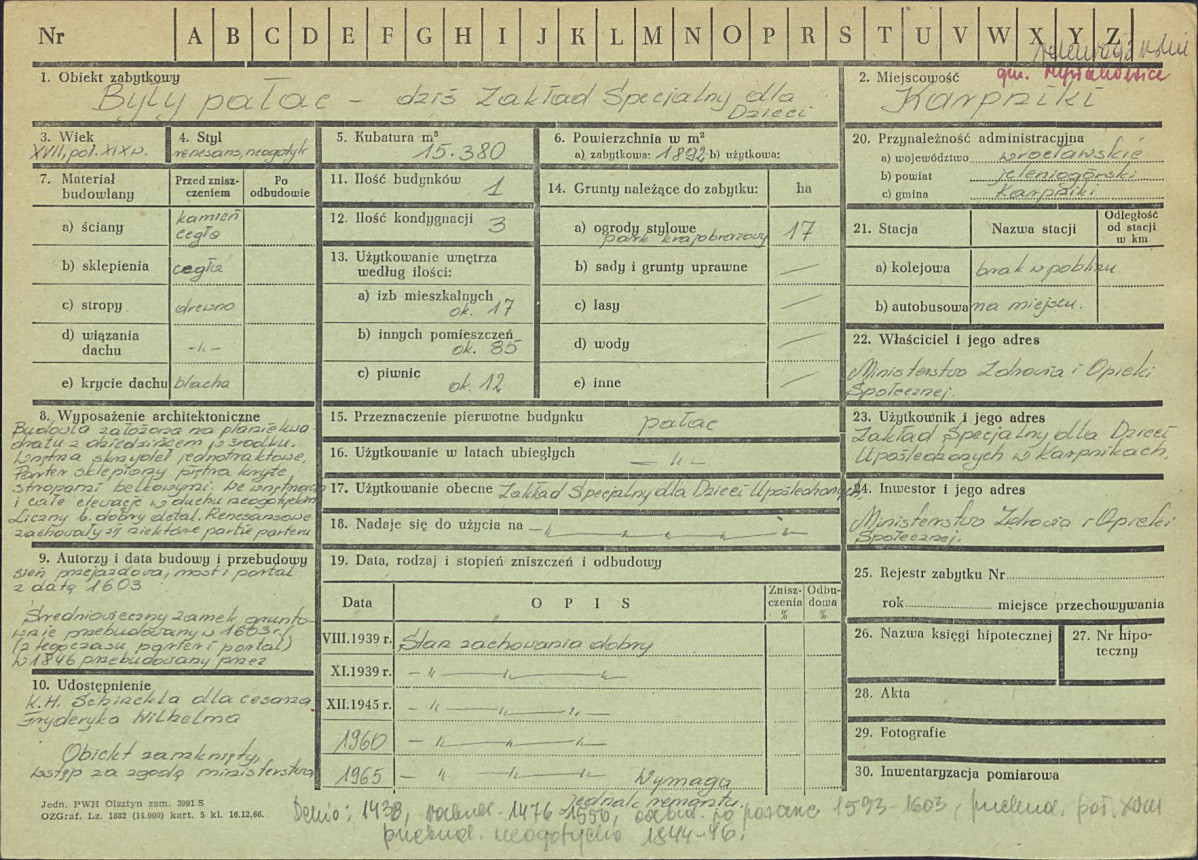 Nr A B C D E F G H I J K L M N O P R S T U V W X Y Z
gm. Mysłakowice
1. Obiekt zabytkowy
Były pałac – dziś Zakład Specjalny dla
Dzieci
2. Miejscowość
Karpniki
3. Wiek
XVII, poł. XIX w.
4. Styl
renesans, neogotyk
5. Kubatura m³
15.380
6. Powierzchnia w m²
a) zabytkowa: 1892 b) użytkowa:
7. Materiał budowlany
Przed zniszczeniem
Po odbudowie
a) ściany kamień cegła
b) sklepienia cegła
c) stropy drewno
d) wiązania dachu -"-
e) krycie dachu blacha
8. Wyposażenie architektoniczne
Budowla założona na planie kwa
dratu z dziedzińcem w środku.
Wnętrza skrzydeł jednotraktowe.
Parter sklepiony piętra kryte
stropami belkowymi. We wnętrzach
i całe elewacje w duchu neogotyckim
Liczny b. dobry detal. Renesansowe
zachowały się niektóre partie parteru
9. Autorzy i data budowy i przebudowy
sień przejazdowa, most i portal
z datą 1603
Średniowieczny zamek grunto-
wnie przebudowany w 1603 r.
(z tego czasu parter i portal)
W 1846 przebudowany przez
10. Udostępnienie
K.H. Schinckla dla cesarza
Fryderyka Wilhelma
Obiekt zamknięty,
wstęp za zgodą ministerstwa
11. Ilość budynków 1
12. Ilość kondygnacji 3
13. Użytkowanie wnętrza
według ilości:
a) izb mieszkalnych
ok. 17
b) innych pomieszczeń
ok. 85
c) piwnic
ok. 12
14. Grunty należące do zabytku: ha
a) ogrody stylowe
park krajobrazowy 17
b) sady i grunty uprawne —
c) lasy —
d) wody —
e) inne —
15. Przeznaczenie pierwotne budynku pałac
16. Użytkowanie w latach ubiegłych — " —
17. Użytkowanie obecne Zakład Specjalny dla Dzieci Upośledzonych
18. Nadaje się do użycia na — " — " — " —
19. Data, rodzaj i stopień zniszczeń i odbudowy
Data
O P I S
Zniszczenia %
Odbudowa %
VIII.1939 r. Stan zachowania dobry
XI.1939 r. — " — " —
XII.1945 r. — " — " —
1960 — " — " —
1965 — " — " — Wymaga
jednak remontu.
20. Przynależność administracyjna
a) województwo wrocławskie
b) powiat jeleniogórski
c) gmina Karpniki
21. Stacja
Nazwa stacji
Odległość od stacji w km
a) kolejowa brak w pobliżu
b) autobusowa na miejscu.
22. Właściciel i jego adres
Ministerstwo Zdrowia i Opieki
Społecznej.
23. Użytkownik i jego adres
Zakład Specjalny dla Dzieci
Upośledzonych w Karpnikach.
24. Inwestor i jego adres
Ministerstwo Zdrowia i Opieki
Społecznej.
25. Rejestr zabytku Nr
rok miejsce przechowywania
26. Nazwa księgi hipotecznej
27. Nr hipoteczny
28. Akta
29. Fotografie
30. Inwentaryzacja pomiarowa
Jedn. PWH Olsztyn zam. 3991.S
OZGraf. Lz. 1882 (14.000) kart. 5 kl. 16.12.66.
Dehio: 1438, rozbud. 1476-1550, odbud. po pożarze 1593-1603, przebud. poł. XVIII
przebud. neogotycka 1844-46.